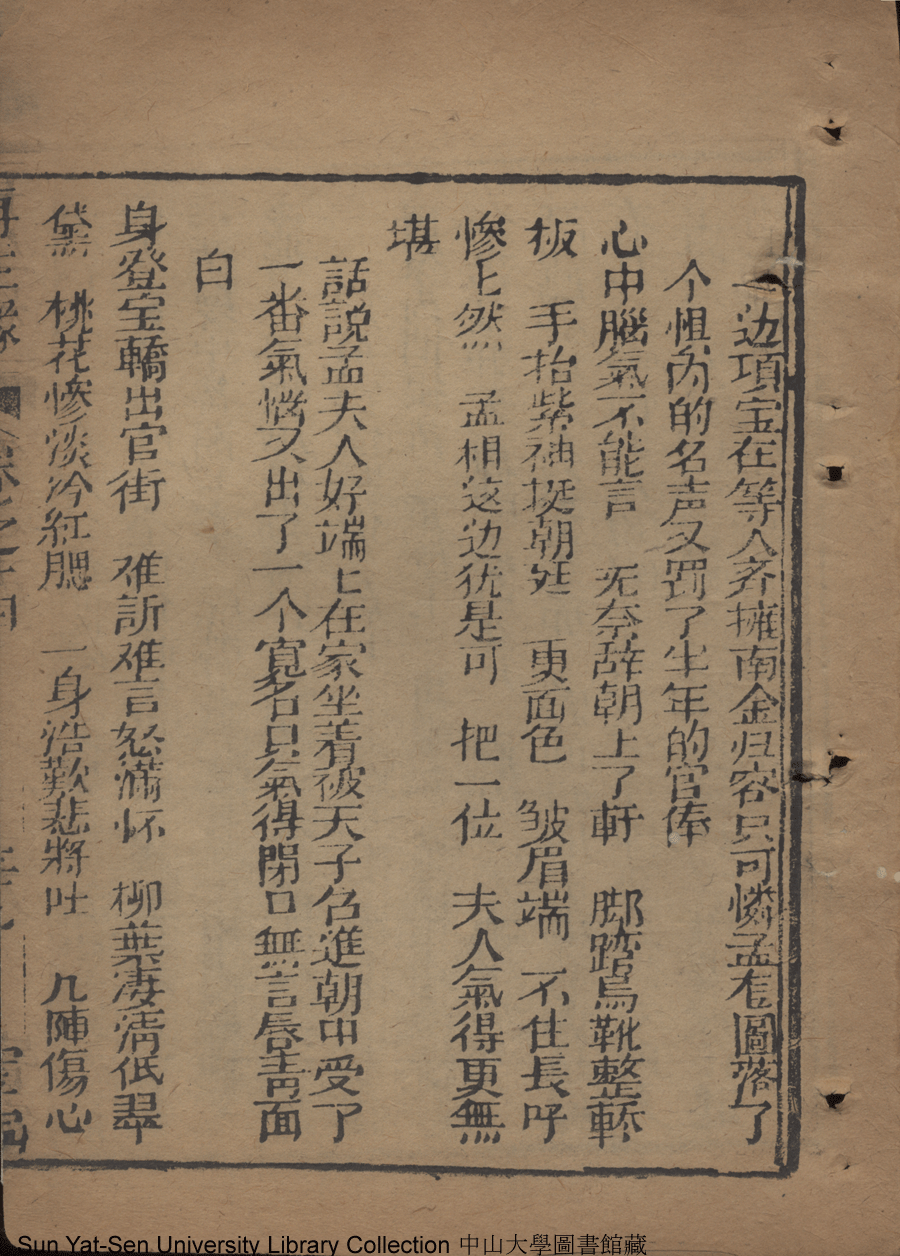 一边項宝在等人齐擁南金归容只可憐孟在圖落了
个惧内的名声又罰了半年的官俸
心中腦氣不能言　无奈辞朝上了軒　脚踏烏靴整轎
板　手抬紫袖挺朝廷　更面色　皱眉端　不住長吁
慘〻然　孟相这边犹是可　把一位　夫人氣得更無
堪
話說孟夫人好端〻在家坐着被天子召進朝中受了
一番氣惱又出了一个寬名只氣得閉口無言唇青面
白
身登宝轎出官街　难訴难言怒滿怀　柳葉凄清低翠
黛　桃花慘淡冷紅腮　一身浩歎悲將吐　几陣傷心
再生緣　卷之十四
Sun Yat-Sen University Library Collection 中山大學圖書館藏